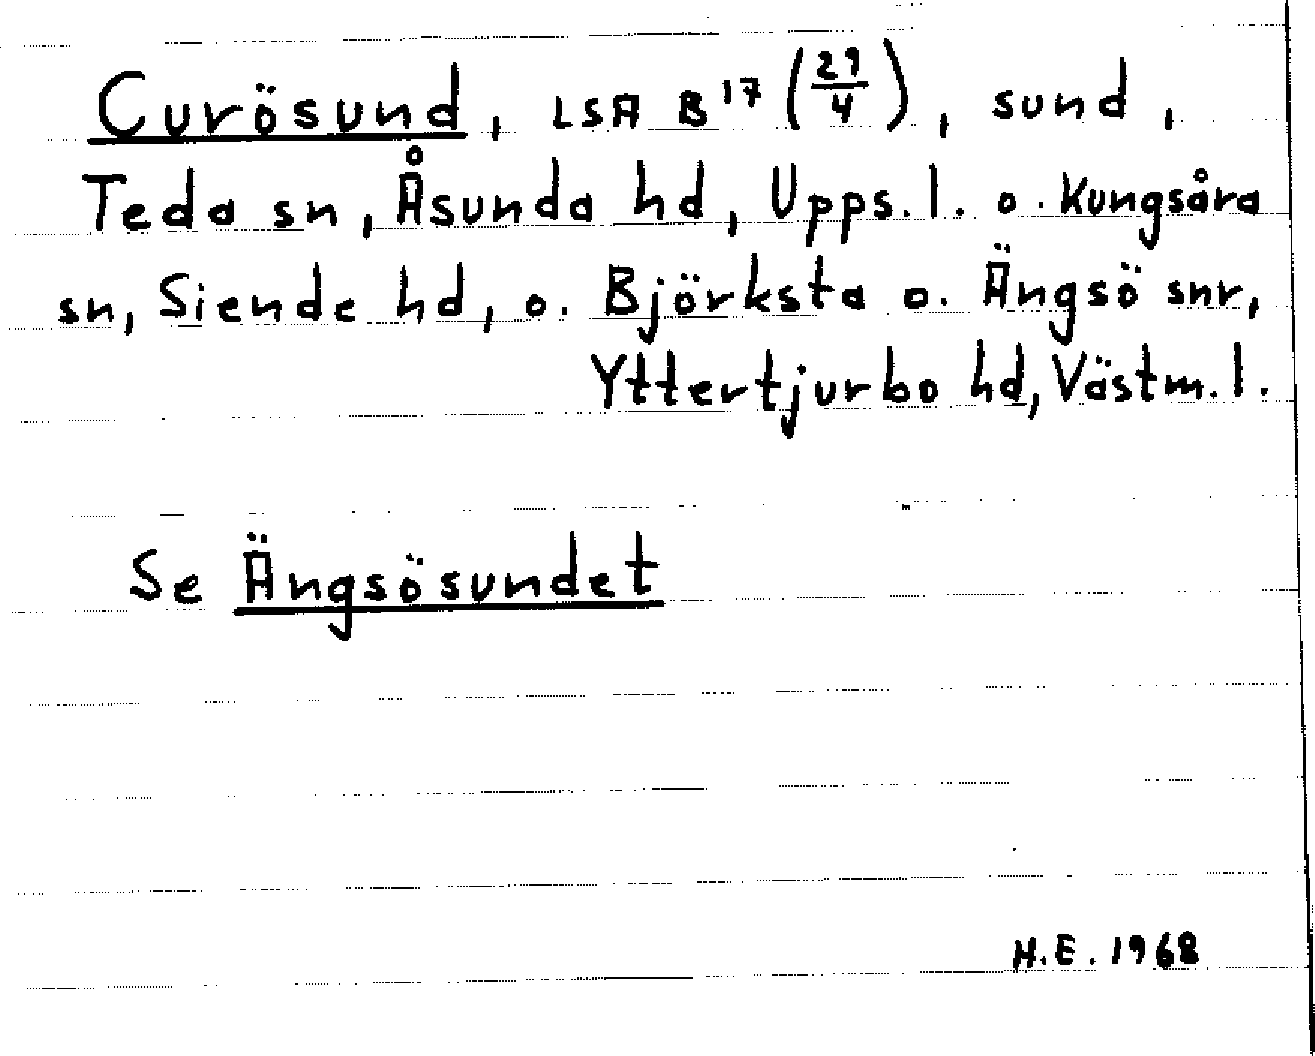 Curösund, LSA B 17 (29/4), sund,
Teda sn, Åsunda hd, Upps. l. o. Kungsåra
sn, Siende hd, o. Björksta o. Ängsö snr,
Yttertjurbo hd, Västm. l.
Se Ängsösundet
H.E. 1968